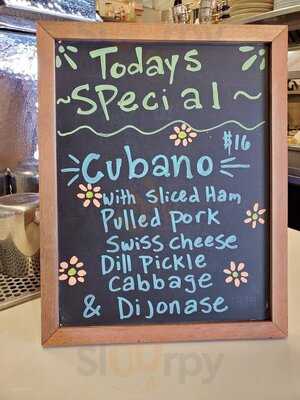 Todays
~ Special ~
$16
Cubano
with sliced Ham
Pulled pork
Swiss cheese
Dill Pickle
cabbage
& Dijonase
Sluurpy